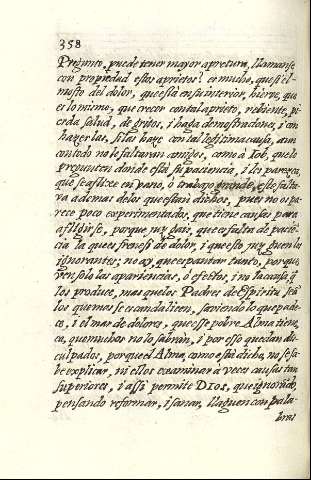 358
Pregunto, puede tener mayor apretura, llamanse
con propiedad estos aprietos? es mucho, que si el
mosto del dolor, que està en su interior, hierve, que
es lo mismo, que crecer con tal aprieto, rebiente, pi-
erda salud, de gritos, i haga demostraciones, i con
hazerlas, si las haze con tal legitima causa, aun
con todo no le faltaràn amigos, como à Job, que le
pregunten donde està su paciencia, i les parezca,
què se aflixe en vano, ò trabajo grande, esso falta-
va ademas de los que estàn dichos, pues no os pa-
rece poco experimentados, que tiene causas para
afligirse, porque juzgais, que es falta de pacie-
cia la que es frenesi de dolor, i que esto juzguen los
ignorantes; no ay que espantar tanto, porque
ven solo las apariencias, ò efectos, i no la causa, q
los produce, mas que los Padres de Espiritu seã
los que mas se escandalizen, sabiendo lo que pade-
ce, i el mar de dolores, que esse pobre Alma tiene,
ca, que muchos no lo sabràn, i por esso quedan dis-
culpados, porque el Alma, como està dicho, no se sa-
be explicar, ni ellos examinar à veces causas tan
superiores, i assi permite DIOS, que ignorãdo,
pensando reformar, i sanar, llaguen con pala-
bras